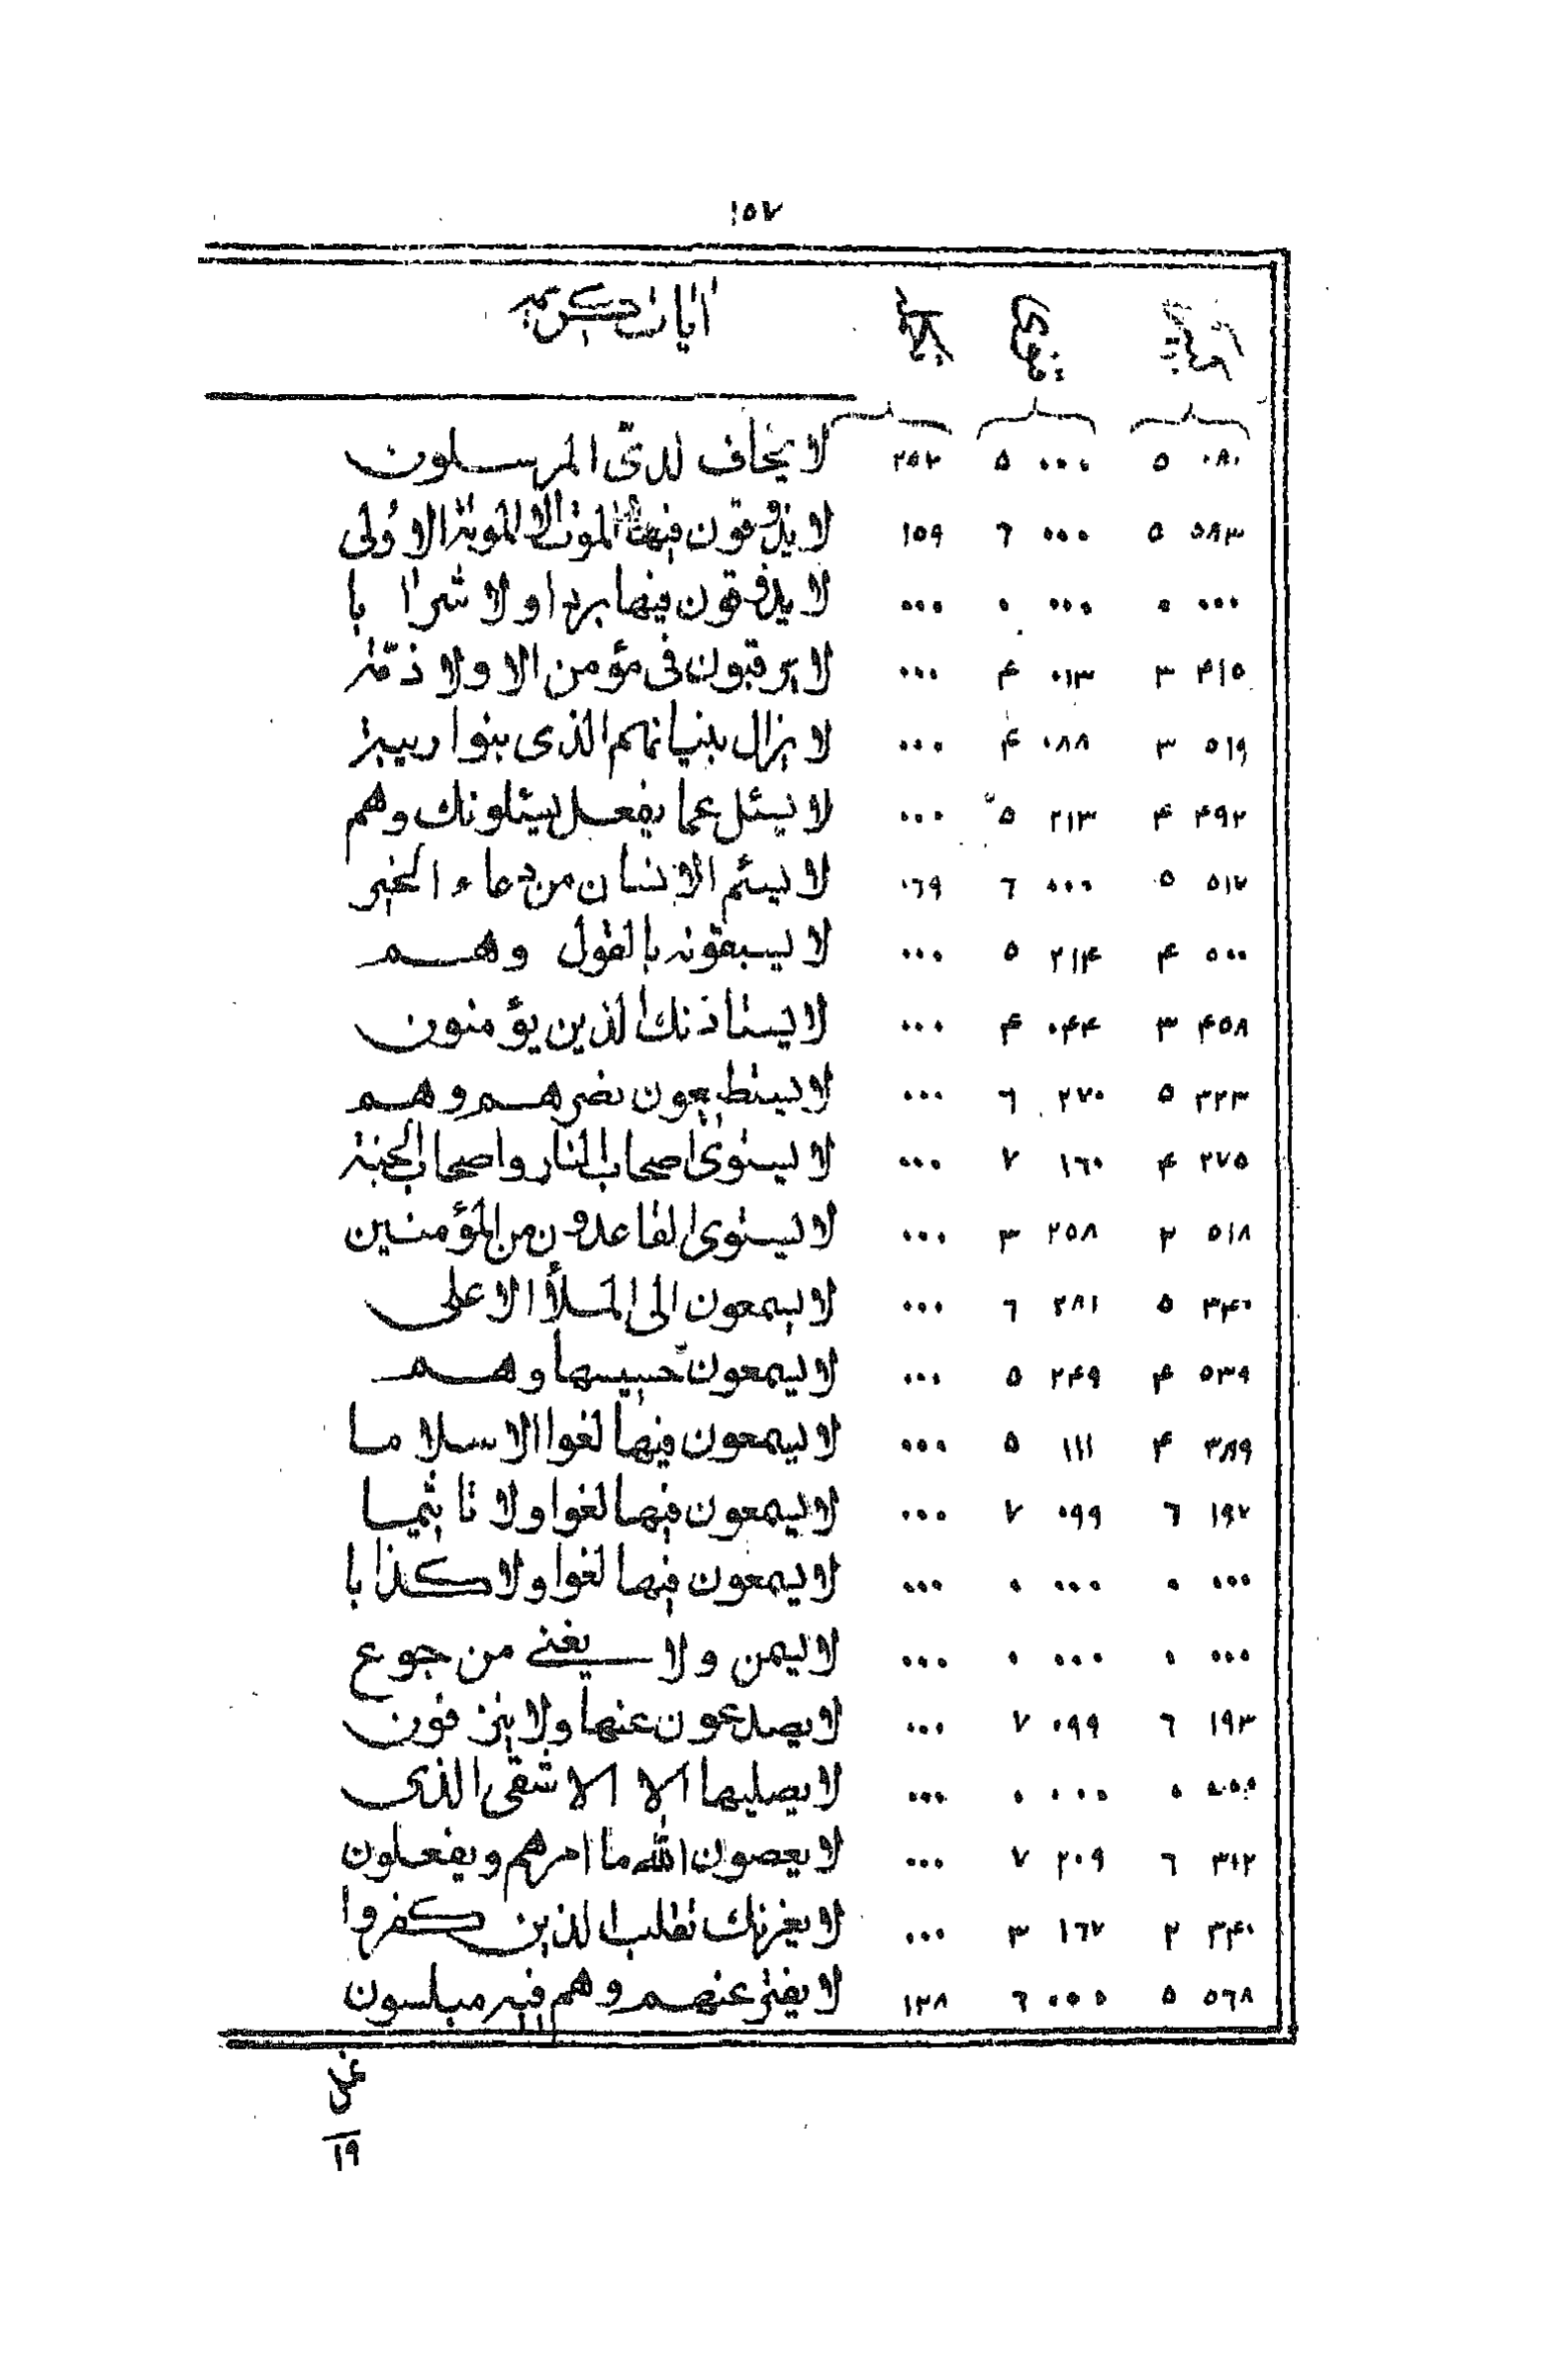 ١٥٧
آيات كريمه
٠٨٠ ٥ ٠٠٠ ٥ ٢٥٢ لا يخاف لدىّ المرسلون
٥٨٣ ٥ ٠٠٠ ٦ ١٥٩ لا يذوقون فيها الموت الا الموتة الاولى
٠٠٠ ٠ ٠٠٠ ٠ ٠٠٠ لا يذوقون فيها بردا ولا شرابا
۴١٥ ٣ ٠١٣ ۴ ٠٠٠ لا يرقبون فى مؤمن الا ولا ذمّة
٥١٩ ٣ ٠٨٨ ۴ ٠٠٠ لا يزال بنيانهم الذى بنوا ريبة
۴٩٢ ۴ ٢١٣ ٥ ٠٠٠ لا يسئل عما يفعل يسئلونك وهم
٥١٢ ٥ ٠٠٠ ٦ ٠٦٩ لا يسئم الانسان من دعاء الخير
٥٠٠ ۴ ٢١۴ ٥ ٠٠٠ لا يسبقونه بالقول وهم
۴٥٨ ٣ ٠۴۴ ۴ ٠٠٠ لا يستاذنك الذين يؤمنون
٣٢٣ ٥ ٢٧٠ ٦ ٠٠٠ لا يستطيعون نصرهم وهم
٢٧٥ ۴ ١٦٠ ٧ ٠٠٠ لا يستوى اصحاب النار واصحاب الجنة
٥١٨ ٢ ٢٥٨ ٣ ٠٠٠ لا يستوى القاعدون من المؤمنين
٣۴٠ ٥ ٢٨١ ٦ ٠٠٠ لا يسمعون الى الملأ الاعلى
٥٣٩ ۴ ٢۴٩ ٥ ٠٠٠ لا يسمعون حسيسها وهم
٣٨٩ ۴ ١١١ ٥ ٠٠٠ لا يسمعون فيها لغوا الا سلاما
١٩٢ ٦ ٠٩٩ ٧ ٠٠٠ لا يسمعون فيها لغوا ولا تاثيما
٠٠٠ ٠ ٠٠٠ ٠ ٠٠٠ لا يسمعون فيها لغوا ولا كذابا
٠٠٠ ٠ ٠٠٠ ٠ ٠٠٠ لا يسمن ولا يغنى من جوع
١٩٣ ٦ ٠٩٩ ٧ ٠٠٠ لا يصدعون عنها ولا ينزفون
٠٠٠ ٠ ٠٠٠ ٠ ٠٠٠ لا يصليها الا الاشقى الذى
٣٠٢ ٦ ٢٠٩ ٧ ٠٠٠ لا يعصون الله ما امرهم ويفعلون
٣۴٠ ٢ ١٦٧ ٣ ٠٠٠ لا يغرنك تقلب الذين كفروا
٥٦٨ ٥ ٠٠٠ ٦ ١٢٨ لا يفتر عنهم وهم فيه مبلسون
١٩